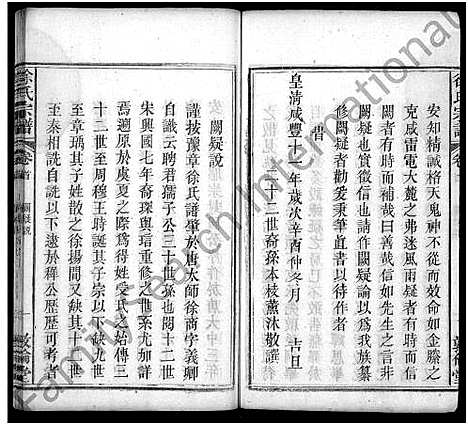 安知精誠格天鬼神不從而效命如金縢之
克咸雷電大麓之弗迷風雨疑者有時而信
者有時而補哉曰善哉信矣如先生之言非
闕也實徵信也請作闕疑論以為我族纂
修闕疑者勸爰秉筆直書以俟後之作者
皇清咸豐十一年歲次辛酉仲冬月　吉旦
昔
三十二世裔孫本枝薰沐敬譔
闕疑說
謹按豫章徐氏譜肇於唐太師徐商字義卿
自識云聘君孺子公三十世孫也閱十二世
宋興國七年裔琛與瑨重修之世系尤加詳
焉溯原於虞夏之際為得姓受氏之始傳三
十二世至周穆王時誕其子宗以後缺其
十九世至章瑀其子姓散之徐揚間又缺其十世
至秦相詵自詵以下遠於稺公歷歷可考者
徐氏宗譜
卷首
闕疑說
敦倫堂
FamilySearch International